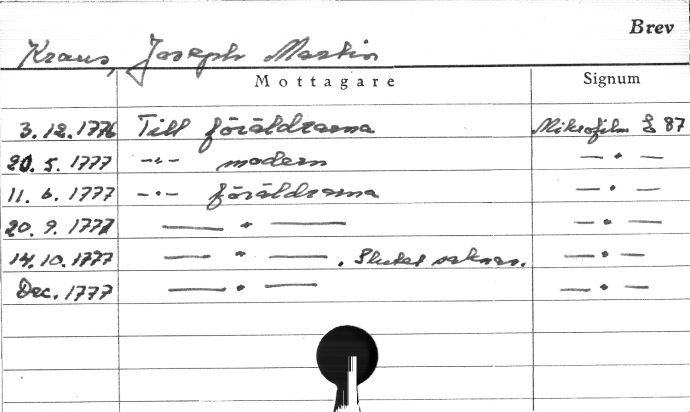 Brev
Kraus, Joseph Martin
Mottagare Signum
3.12.1776 Till föräldrarna Mikrofilm S 87
20.5.1777 -"- modern — " —
11.6.1777 -"- föräldrarna — " —
20.9.1777 — " — — " —
14.10.1777 — " — . Slutet saknas. — " —
Dec. 1777 — " — — " —